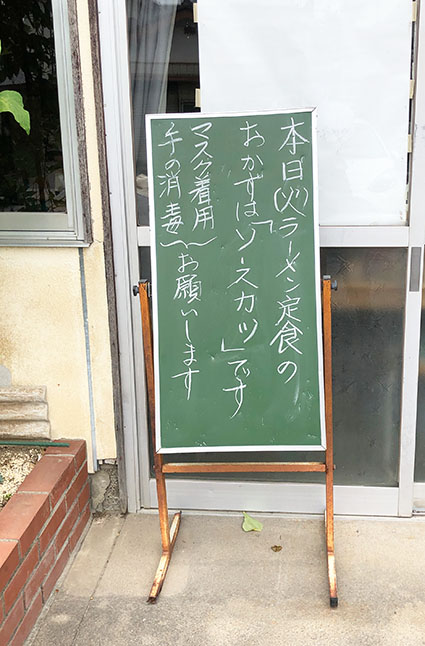 本日(火)ラーメン定食の
おかずは「ソースカツ」です
マスク着用
手の消毒
お願いします